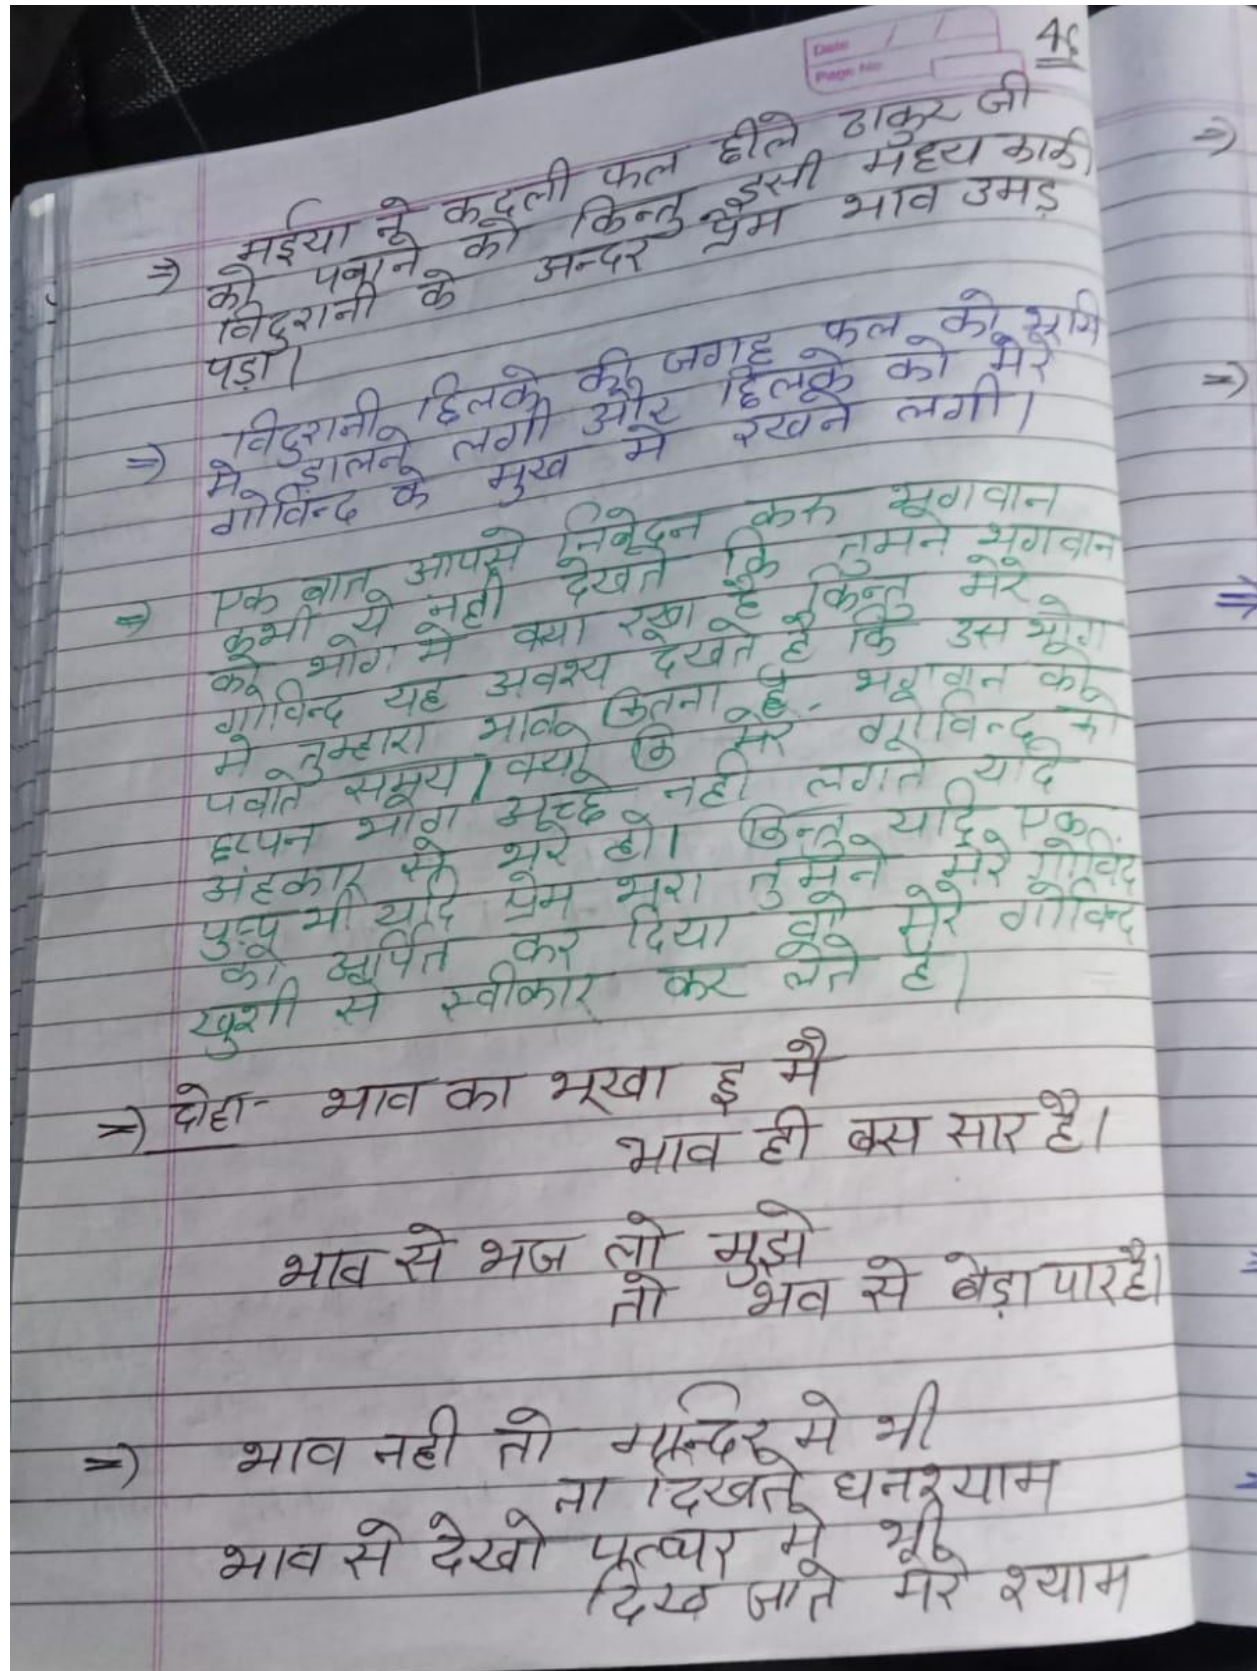 Date / /
Page No
मईया ने कदली फल छीले ठाकुर जी
⇒ को पवाने को किन्तु इसी मध्य काकी
विदुरानी के अन्दर प्रेम भाव उमड़
पड़ा।
विदुरानी छिलके की जगह फल को भूमि
⇒ मे डालने लगी और छिलके को मेरे
गोविन्द के मुख मे रखने लगी।
⇒ एक बात आपसे निवेदन करु भगवान
कभी ये नही देखते कि तुमने भगवान
को भोग मे क्या रखा है किन्तु मेरे
गोविन्द यह अवश्य देखते है कि उस भोग
मे तुम्हारा भाव कितना है, भगवान को
पवाते समय। क्यो कि मेरे गोविन्द को
छप्पन भोग अच्छे नही लगते यदि
अंहकार से भरे हो। किन्तु यदि एक
पुष्प भी यदि प्रेम भरा तुमने मेरे गोविंद
को अर्पित कर दिया वो मेरे गोविन्द
खुशी से स्वीकार कर लेते है।
⇒ दोहा- भाव का भूखा हु मै
भाव ही बस सार है।
भाव से भज लो मुझे
तो भव से बेड़ा पार है।
⇒ भाव नही तो मन्दिर मे भी
ना दिखते घनश्याम
भाव से देखो पत्थर मे भी
दिख जाते मेरे श्याम